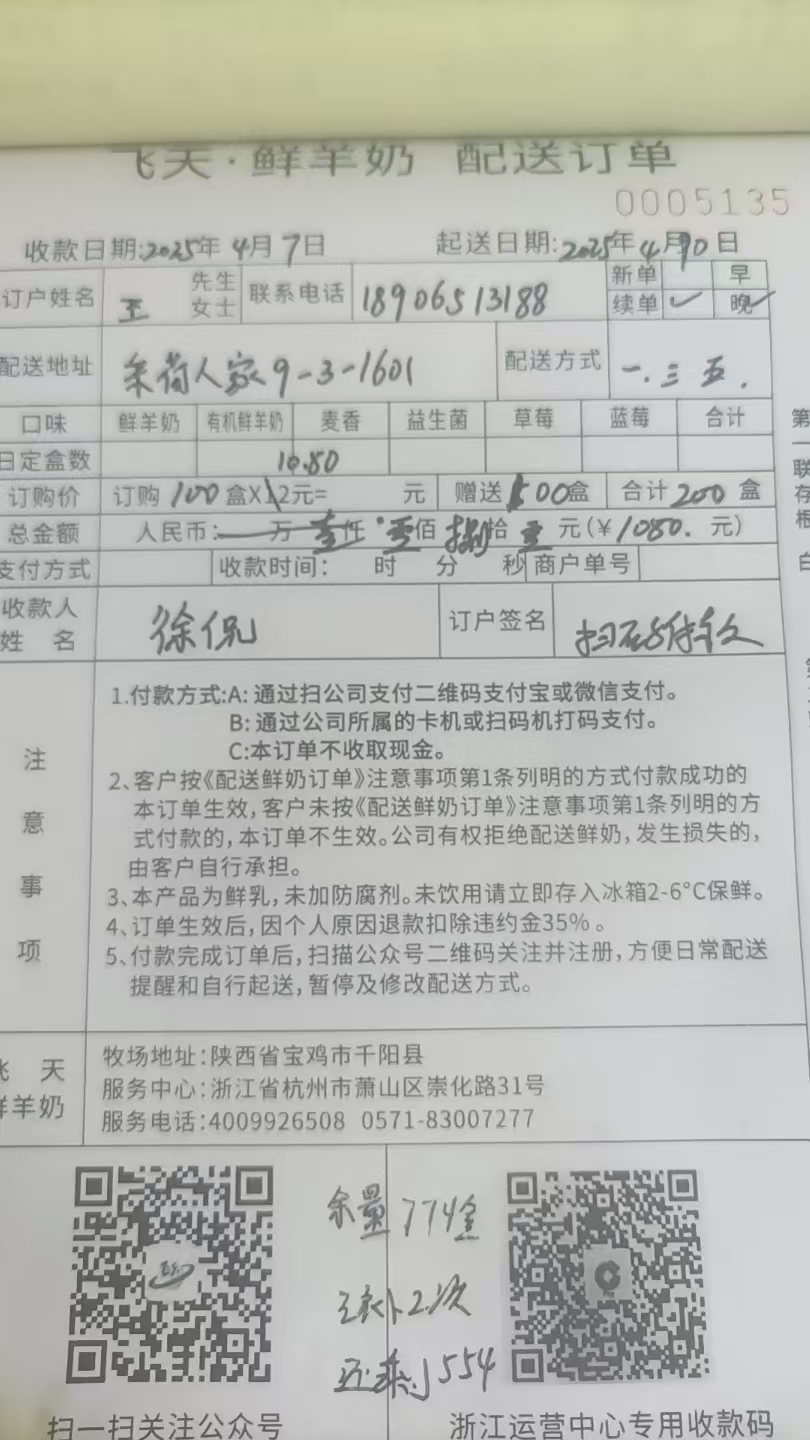 飞天·鲜羊奶 配送订单
0005135
收款日期:2025年4月7日 起送日期:2025年4月10日
订户姓名 王 先生 女士 联系电话 18906513188 新单 早 续单 ✓ 晚 ✓
配送地址 采荷人家9-3-1601 配送方式 一.三五.
口味 鲜羊奶 有机鲜羊奶 麦香 益生菌 草莓 蓝莓 合计
日定盒数 10.80
订购价 订购100盒X12元= 元 赠送100盒 合计200盒
总金额 人民币: 万 壹仟 零佰 捌拾 零元(¥1080.元)
支付方式 收款时间: 时 分 秒 商户单号
收款人姓名 徐侃 订户签名 扫码
注意事项
1.付款方式:A:通过扫公司支付二维码支付宝或微信支付。
B:通过公司所属的卡机或扫码机打码支付。
C:本订单不收取现金。
2、客户按《配送鲜奶订单》注意事项第1条列明的方式付款成功的
本订单生效,客户未按《配送鲜奶订单》注意事项第1条列明的方
式付款的,本订单不生效。公司有权拒绝配送鲜奶,发生损失的,
由客户自行承担。
3、本产品为鲜乳,未加防腐剂。未饮用请立即存入冰箱2-6°C保鲜。
4、订单生效后,因个人原因退款扣除违约金35%。
5、付款完成订单后,扫描公众号二维码关注并注册,方便日常配送
提醒和自行起送,暂停及修改配送方式。
飞天鲜羊奶
牧场地址:陕西省宝鸡市千阳县
服务中心:浙江省杭州市萧山区崇化路31号
服务电话:4009926508 0571-83007277
余量774盒
2次
还剩554
扫一扫关注公众号 浙江运营中心专用收款码
第一联存根 白